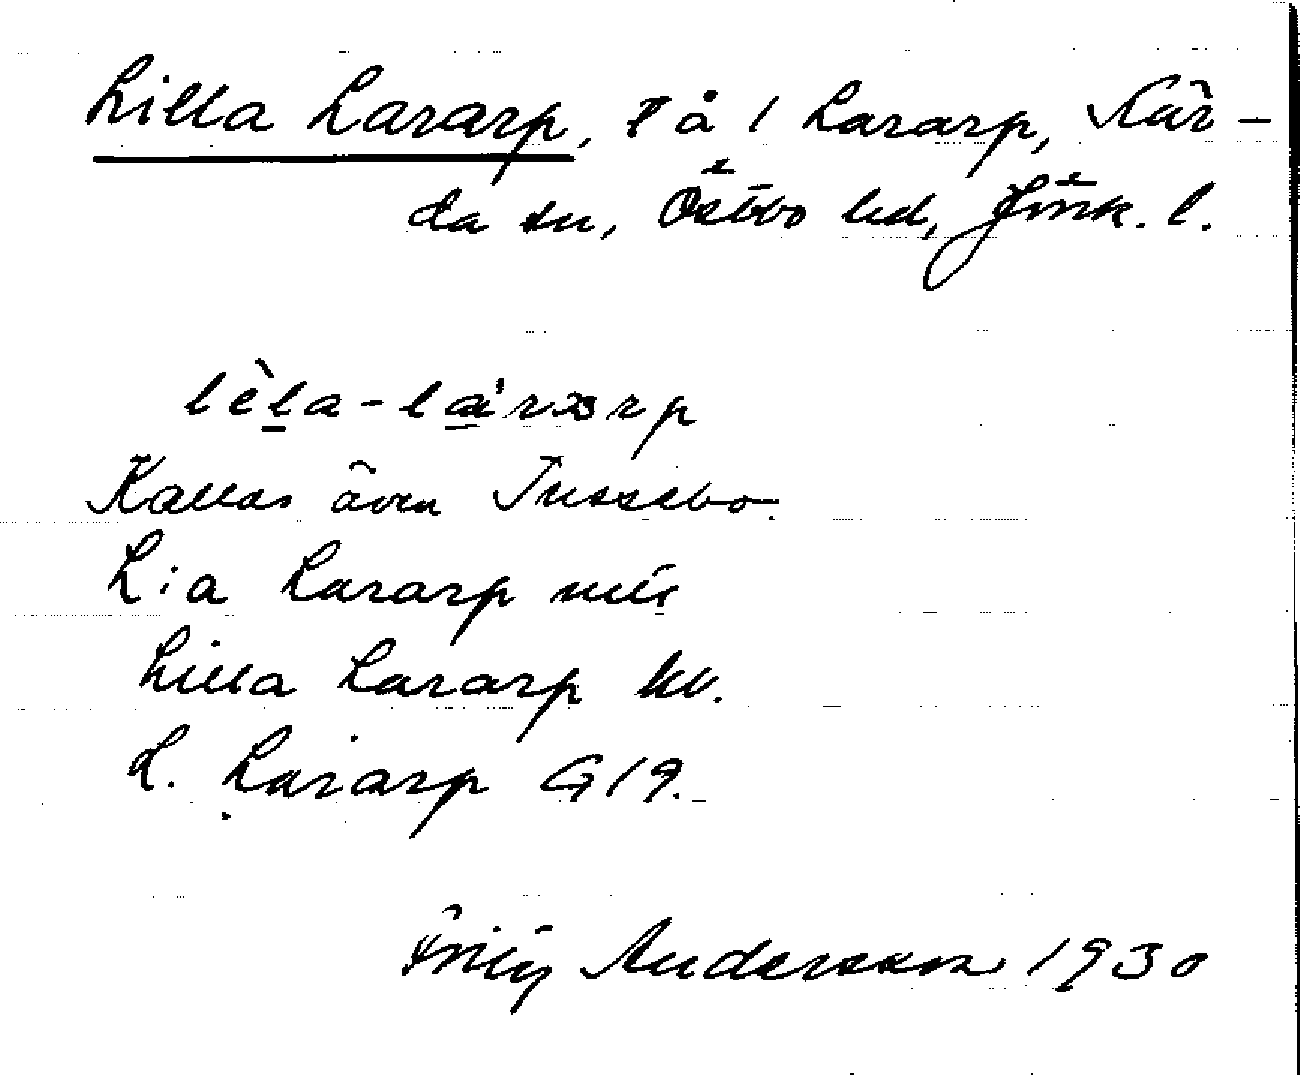 Lilla Lararp, T å 1 Lararp, Kär-
da sn, Östbo hd, Jönk. l.
lèla-lárarp
Kallas även Tussebo.
L:a Lararp
Lilla Lararp kv.
L. Lararp G19.
Andersson 1930